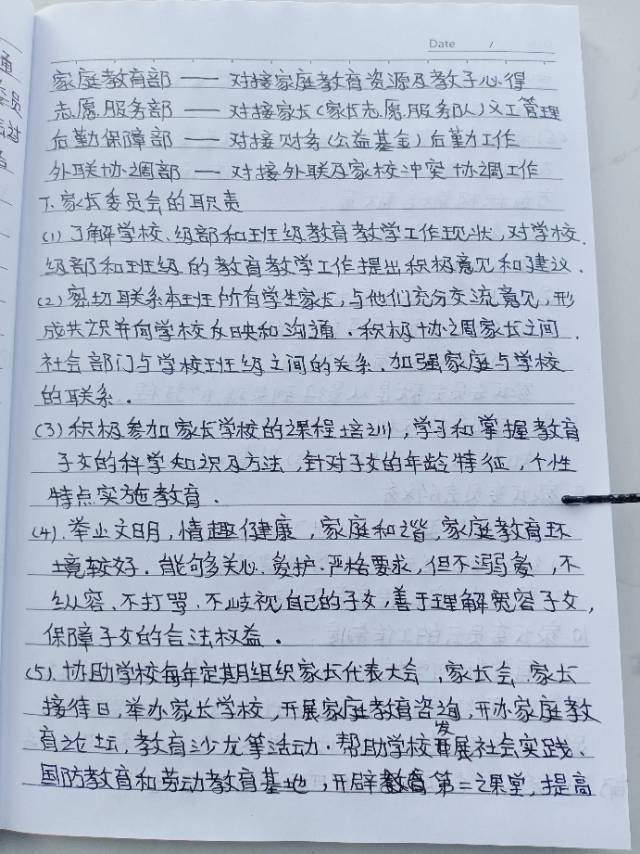 Date /
家庭教育部 —— 对接家庭教育资源及教子心得
志愿服务部 —— 对接家长(家长志愿服务队)义工管理
后勤保障部 —— 对接财务(公益基金)后勤工作
外联协调部 —— 对接外联及家校冲突协调工作
下.家长委员会的职责
(1)了解学校、级部和班级教育教学工作现状,对学校.
级部和班级的教育教学工作提出积极意见和建议.
(2)密切联系本班所有学生家长,与他们充分交流意见,形
成共识并向学校反映和沟通.积极协调家长之间.
社会部门与学校班级之间的关系.加强家庭与学校
的联系.
(3)积极参加家长学校的课程培训,学习和掌握教育
子女的科学知识及方法,针对子女的年龄特征,个性
特点实施教育.
(4).举止文明,情趣健康,家庭和谐,家庭教育环
境较好.能够关心.爱护.严格要求,但不溺爱,不
纵容.不打骂.不歧视自己的子女,善于理解宽容子女,
保障子女的合法权益.
(5).协助学校每年定期组织家长代表大会,家长会.家长
接待日,举办家长学校,开展家庭教育咨询,开办家庭教
育论坛,教育沙龙等活动.帮助学校开发展社会实践、
国防教育和劳动教育基地,开辟教育第二课堂,提高